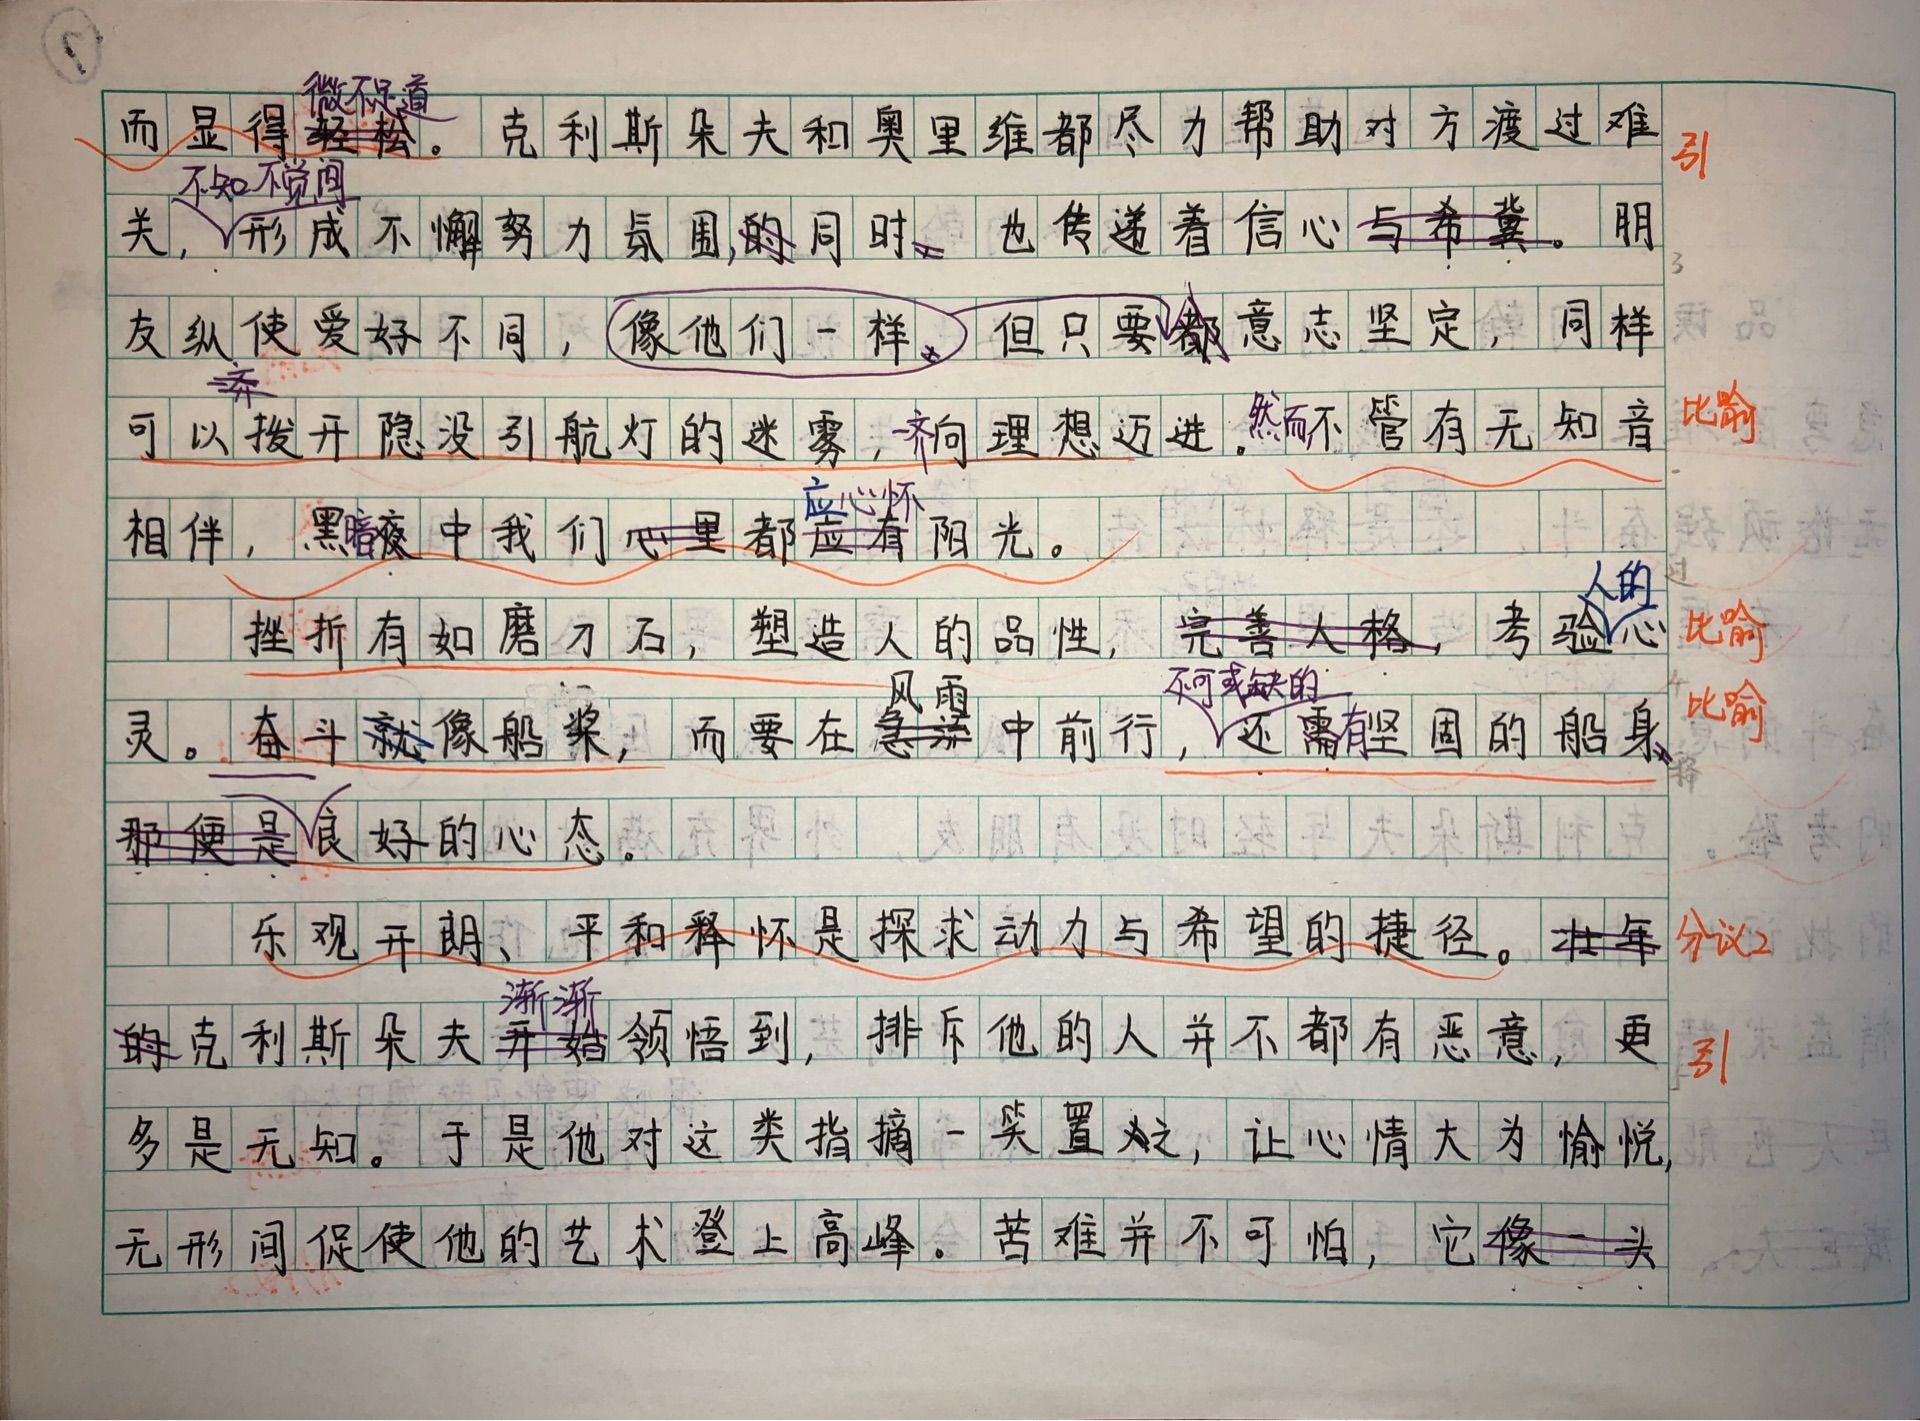 微不足道
而显得轻松。克利斯朵夫和奥里维都尽力帮助对方渡过难 引
不知不觉间
关,形成不懈努力氛围,的同时、也传递着信心与希冀。朋
友纵使爱好不同,像他们一样、但只要都意志坚定,同样
齐
可以拨开隐没引航灯的迷雾,齐向理想迈进。然而不管有无知音 比喻
应心怀
相伴,黑暗夜中我们心里都应有阳光。
人的
挫折有如磨刀石,塑造人的品性,完善人格,考验心 比喻
风雨 不可或缺的
灵。奋斗就像船桨,而要在急流中前行,还需有坚固的船身、 比喻
那便是良好的心态。
乐观开朗、平和释怀是探求动力与希望的捷径。壮年 分议2
渐渐
的克利斯朵夫开始领悟到,排斥他的人并不都有恶意,更 引
多是无知。于是他对这类指摘一笑置之,让心情大为愉悦,
无形间促使他的艺术登上高峰。苦难并不可怕,它像一头